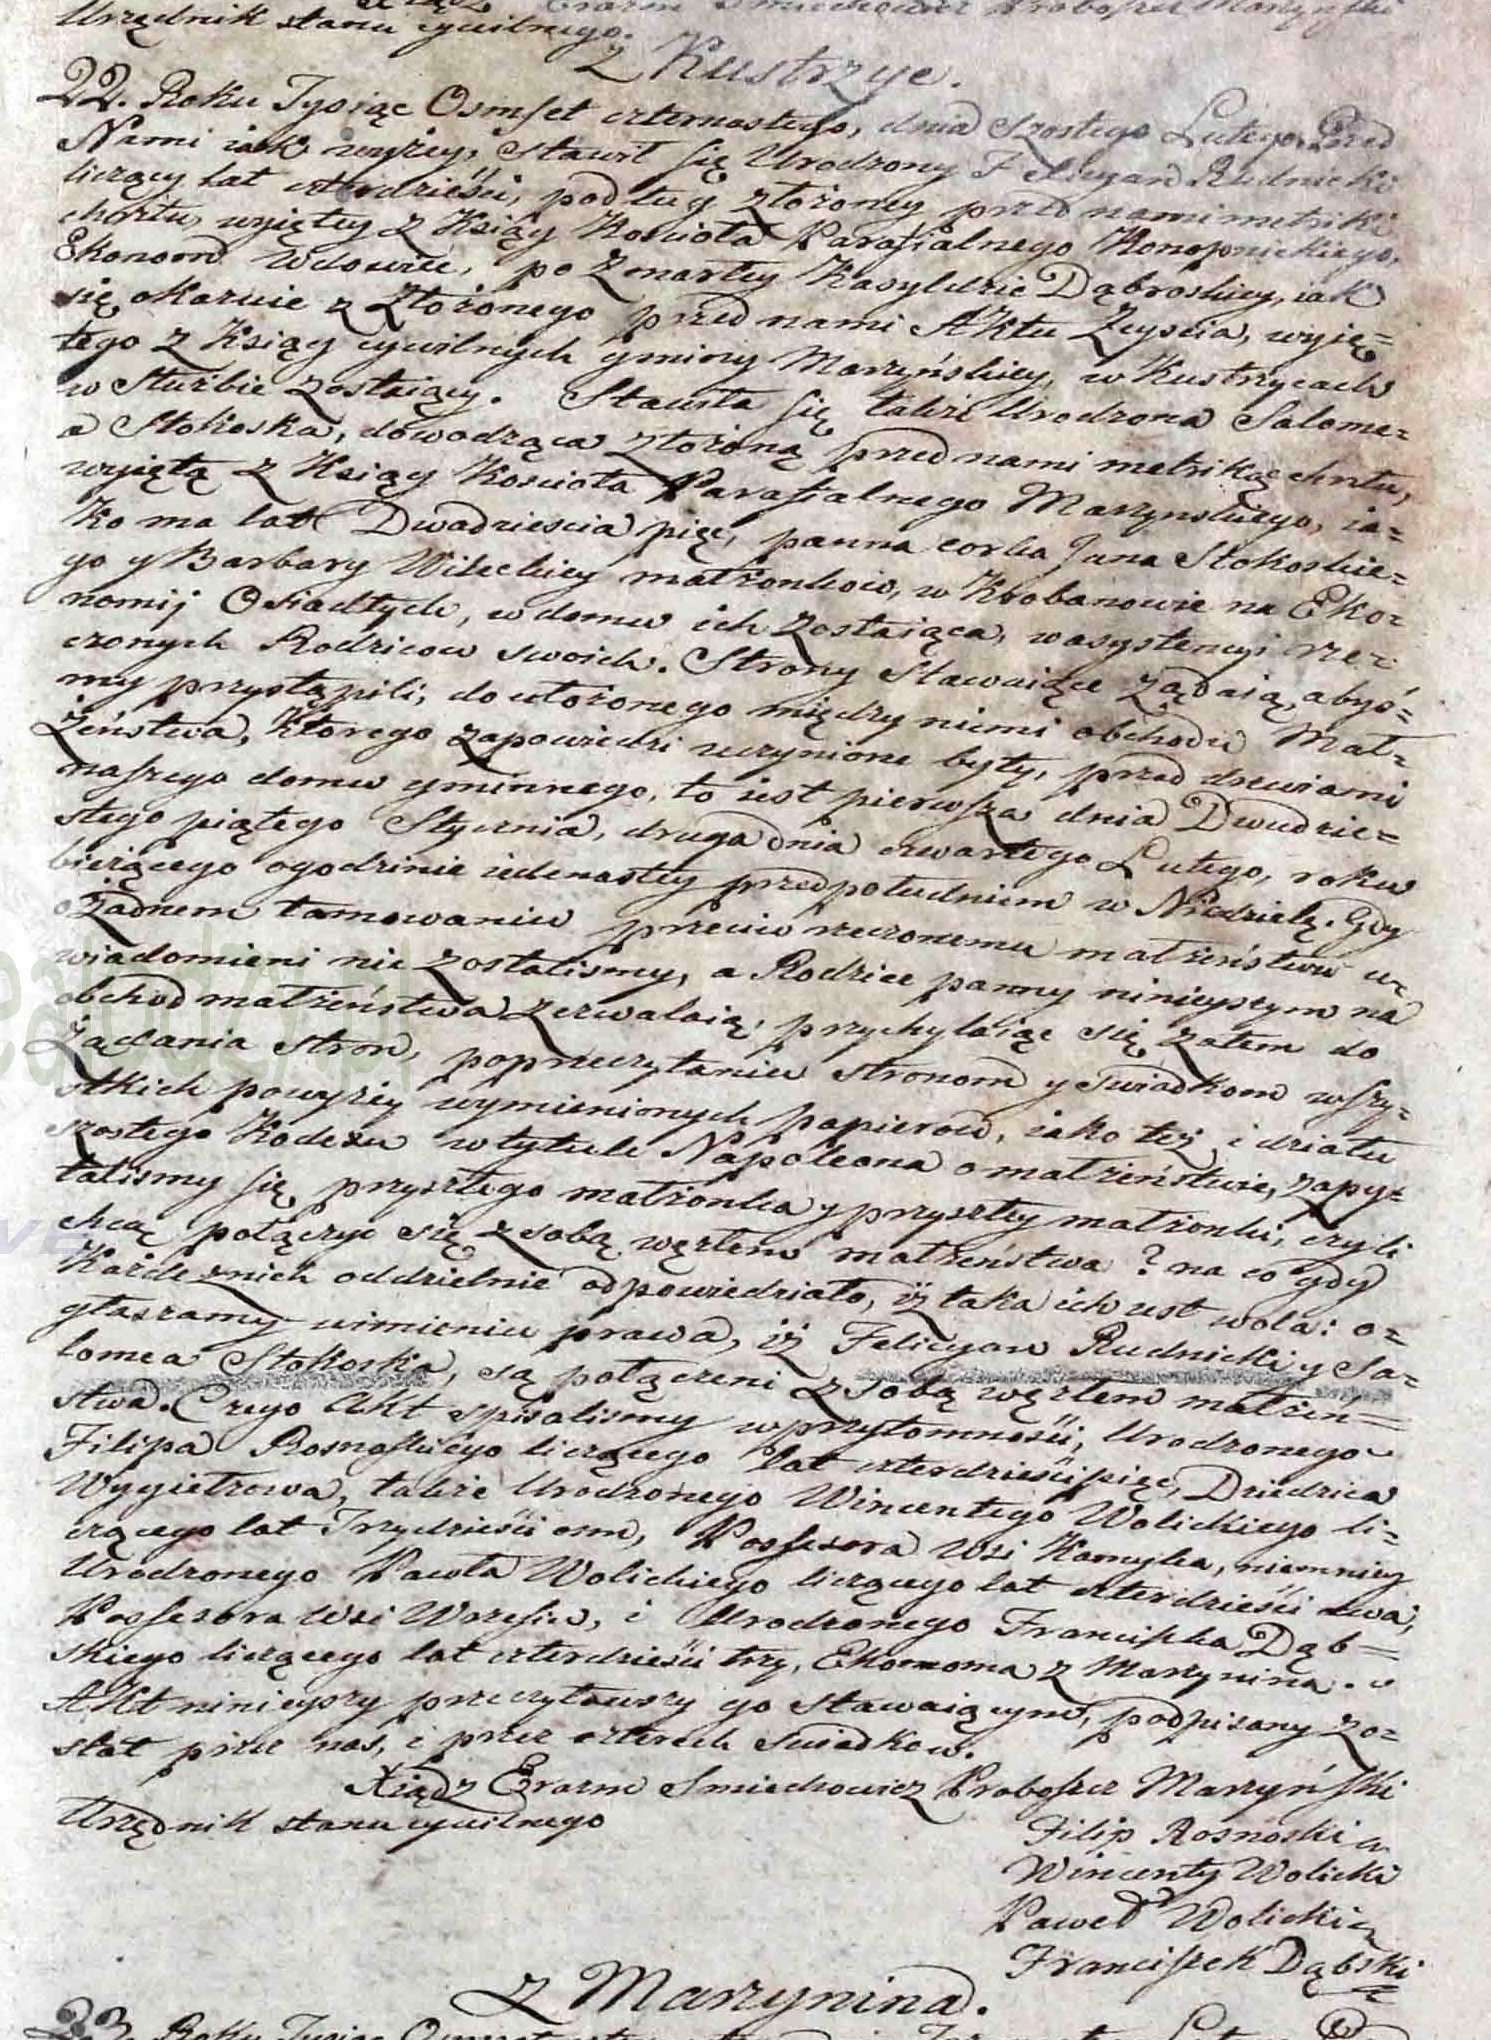 Xiądz Erazm Smiechowicz Proboszcz Marzyński
Urzędnik stanu cywilnego.
z Kustrzyc.
22. Roku Tysiąc Osmset czternastego, dnia szostego Lutego. Przed
Nami iak wyżey, stawił się Urodzony Felicyan Rudnicki
liczący lat czterdzieści, podług złożoney przed nami metriki
chrztu, wyiętey z Księgi Kościoła Parafialnego Konopnickiego,
Ekonom Wdowiec, po Zmarłey Kasyldzie Dąbroskiey, iak
się okazuie z złożonego przed nami Aktu Zeyścia, wyię=
tego z Ksiąg cywilnych gminy Marzyńskiey, w Kustrzycach
w Służbie zostaiący. Stawiła się także Urodzona Salome=
a Stokoska, dowodząca złożoną przed nami metriką chrztu,
wyiętą z Księgi Kościoła Parafialnego Marzynskiego, ia=
ko ma lat Dwadzieścia pięć, panna corka Jana Stokoskie=
go y Barbary Wileckiey małżonkow, w Krobanowie na Eko=
nomij Osiadłych, w domu ich zostaiąca, w asystencyi rze=
czonych Rodzicow swoich. Strony Stawaiące żądaią, abyś=
my przystąpili, do ułożonego między niemi obchodu Mał=
żeństwa, którego zapowiedzi uczynione były, przed drzwiami
naszego domu gminnego, to iest pierwsza dnia Dwudzie=
stego piątego Stycznia, druga dnia czwartego Lutego, roku
bieżącego o godzinie iedenastey przed południem w Niedzielę. Gdy
o żadnem tamowaniu przeciw rzeczonemu małżeństwu u=
wiadomieni nie zostalismy, a Rodzice panny ninieyszym na
obchod małżeństwa zezwalaią, przychylaiąc się zatem do
żądania stron, po przeczytaniu stronom y swiadkom wszy=
stkich powyżey wymienionych papierow, iako też i działu
szostego Kodexu w tytule Napoleona o małżeństwie, zapy=
talismy się przyszłego małżonka y przyszłey małżonki, czyli
chcą połączyć się z sobą węzłem małżeństwa? na co gdy
każde z nich oddzielnie odpowiedziało, iż taka ich iest wola: o=
głaszamy w imieniu prawa, iż Felicyan Rudnicki y Sa=
lomea Stokoska, są połączeni z sobą węzłem małżeń=
stwa. Czego Akt spisalismy w przytomności, Urodzonego
Filipa Rosnoskiego liczącego lat czterdzieści pięć, Dziedzica
Wygiełzowa, także Urodzonego Wincentego Wolickiego li=
czącego lat Trzydzieści osm, Possesora Wsi Kamyka, niemniey
Urodzonego Pawła Wolickiego liczącego lat czterdzieści dwa,
Possesora Wsi Wrzesin, i Urodzonego Franciszka Dąb=
skiego liczącego lat czterdzieści trzy, Ekonoma z Marzynina.
Akt ninieyszy przeczytawszy go stawaiącym, podpisany zo=
stał przez nas, i przez czterech swiadkow.
Xiądz Erazm Smiechowicz Proboszcz Marzyński
Urzędnik stanu cywilnego
Filip Rosnoski
Wincenty Wolicki
Paweł Wolicki
Franciszek Dąbski
z Marzynina.
23. Roku Tysiąc